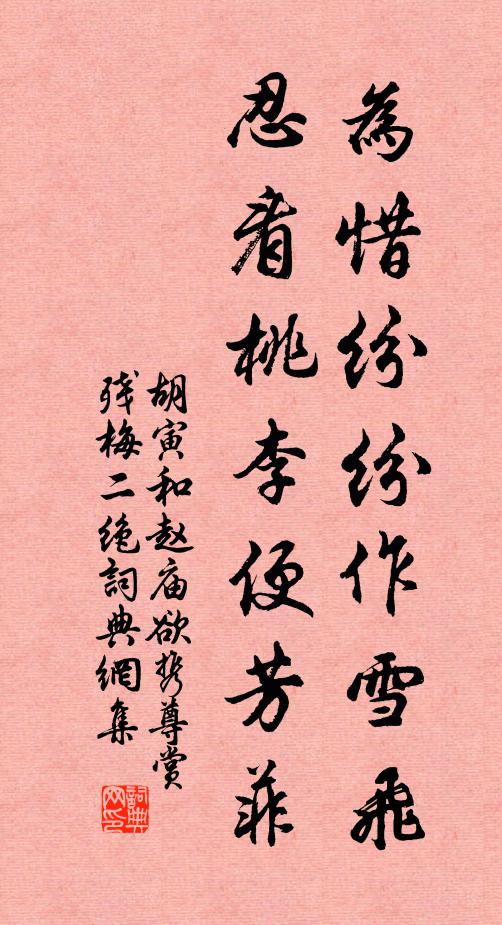 為惜紛紛作雪飛
忍看桃李便芳菲
胡寅和赵庙欲携尊赏
残梅二绝詞典網集
詞典网印